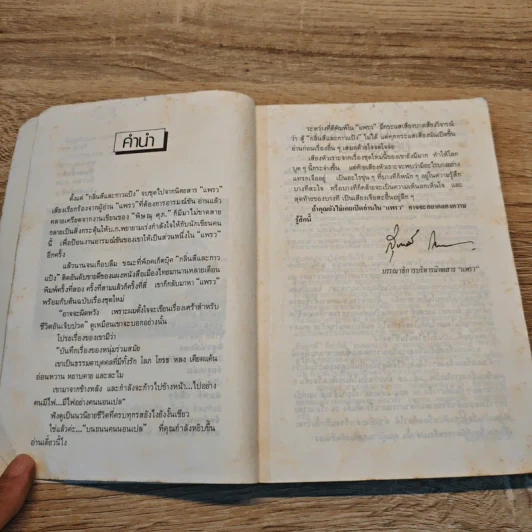 คำนำ
ตั้งแต่ "กลิ่นสีและกาวแป้ง" จบชุดไปจากนิตยสาร "แพรว"
เสียงเรียกร้องจากผู้อ่าน "แพรว" ที่มีอารมณ์ขัน อ่านแล้ว
คลายเครียดจากงานเขียนของ "พิษณุ ศุภ." ก็มีมาไม่ขาดสาย
กลายเป็นสิ่งกระตุ้นให้บ.ก.พยายามเร่งกำลังใจให้กับนักเขียนคน
นี้ เพื่อป้อนงานอารมณ์ขันของเขาให้เป็นส่วนหนึ่งใน "แพรว"
อีกครั้ง
แล้วนานจนเกือบลืม ขณะที่พ็อคเก็ตบุ๊ค "กลิ่นสีและกาว
แป้ง" ติดอันดับขายดีของแผงหนังสือเมืองไทยมานานหลายเดือน
พิมพ์ครั้งที่สอง ครั้งที่สามแล้วก็ครั้งที่สี่ เขาก็กลับมาหา "แพรว"
พร้อมกับต้นฉบับเรื่องชุดใหม่
"อาจจะผิดหวัง เพราะผมตั้งใจจะเขียนเรื่องเศร้าสำหรับ
ชีวิตอันเจ็บปวด" ดูเหมือนเขาจะบอกอย่างนั้น
โปรยเรื่องของเขามีว่า
"บันทึกเรื่องของหนุ่มร่วมสมัย
เขาเป็นธรรมดาบุคคลที่มีทั้งรัก โลภ โกรธ หลง เคียดแค้น
อ่อนหวาน หยาบคาย และละไม
เขามาจากข้างหลัง และกำลังจะก้าวไปข้างหน้า...ไปอย่าง
คนมีไฟ...มีไฟอย่างคนนอนเปล"
ฟังดูเป็นนวนิยายชีวิตที่ครบทุกรสยังไงยังงั้นเชียว
ใช่แล้วค่ะ..."บนถนนคนนอนเปล" ที่คุณกำลังหยิบขึ้น
อ่านเดี๋ยวนี้ไง
ระหว่างที่ตีพิมพ์ใน "แพรว" มีกระแสเสียงบางเสียงวิจารณ์
ว่า สู้ "กลิ่นสีและกาวแป้ง" ไม่ได้ แต่ทุกกระแสเสียงมันเปิดขึ้น
อ่านก่อนเรื่องอื่น ๆ เสมอด้วยใจจดใจจ่อ
เสียงหัวเราะจากเรื่องชุดใหม่นี้ของเขายังมีมาก ทำให้โลก
บูด ๆ นี้กระจ่างขึ้น แต่ท้ายเสียงหัวเราะจะพบว่ามีอะไรบางอย่าง
แทรกเจืออยู่ เป็นอะไรขุ่น ๆ ที่บางทีก็หนัก ๆ อยู่ในความรู้สึก
บางทีสะใจ หรือบางทีก็คล้ายจะเป็นความเห็นอกเห็นใจ และ
สุดท้ายของบางที เป็นเสียงเจือสะอื้นอยู่ลึก ๆ
ถ้าคุณยังไม่เคยเปิดอ่านใน "แพรว" อาจจะอยากลองความ
รู้สึกนี้
บรรณาธิการบริหารนิตยสาร "แพรว"